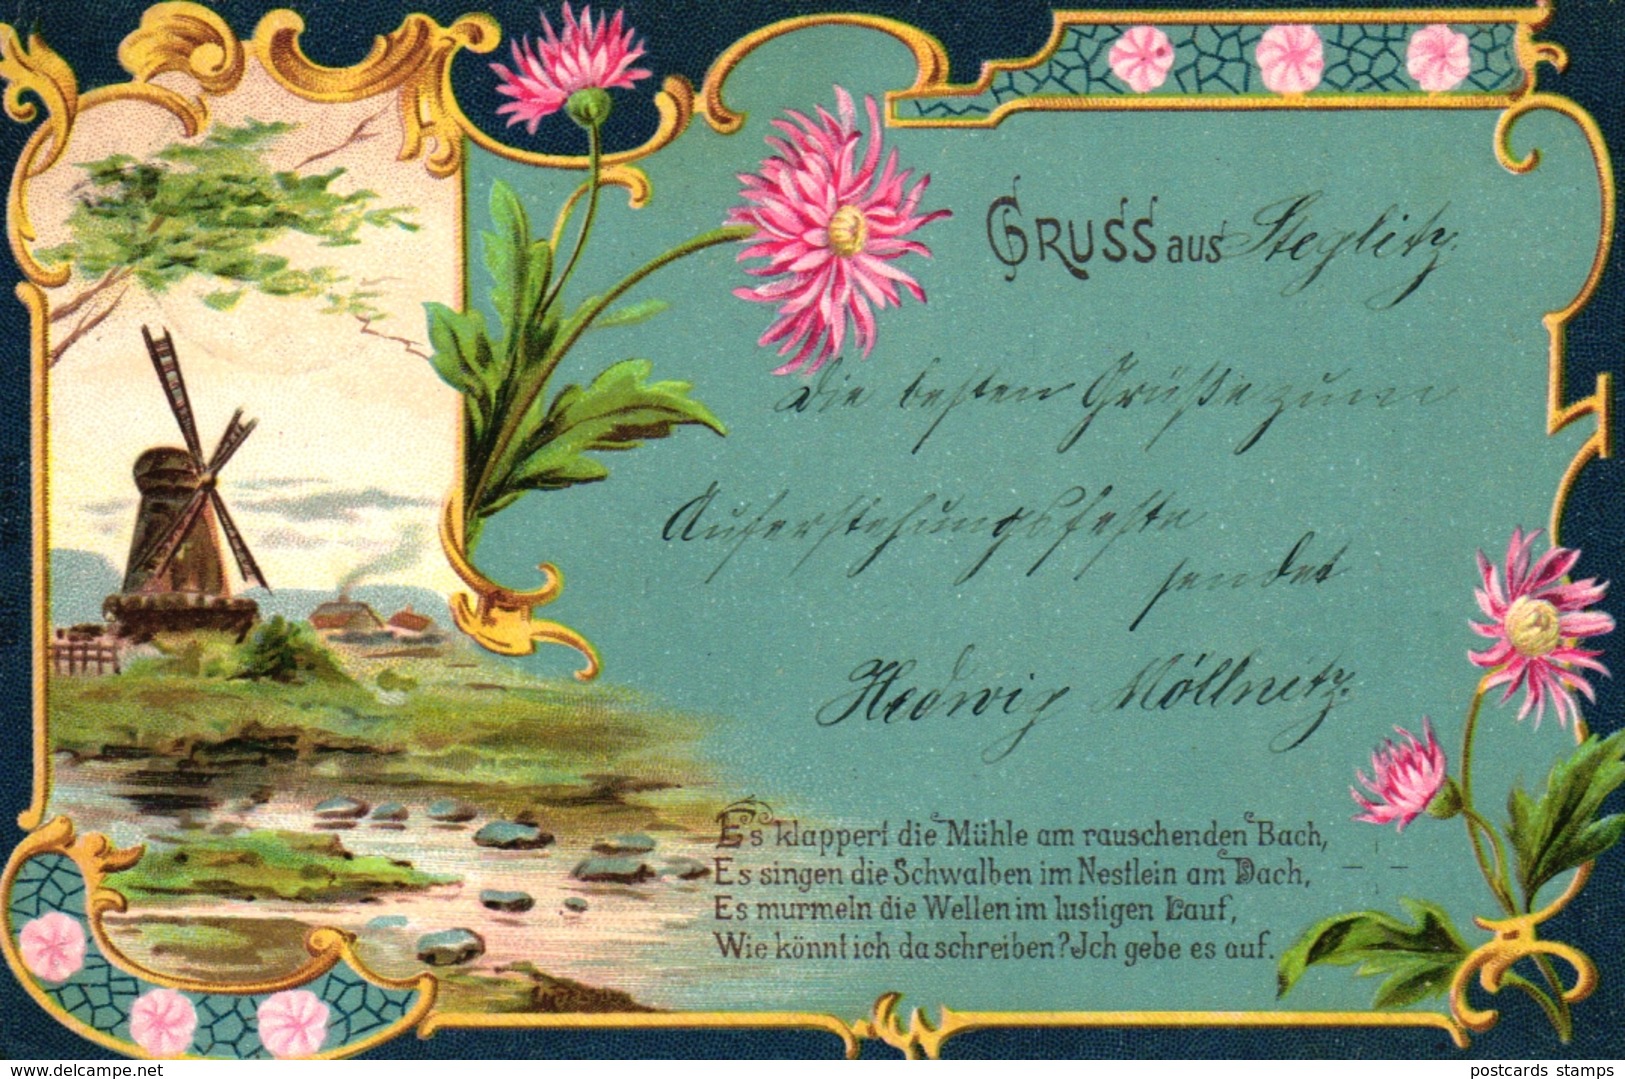 GRUSS aus Steglitz.
Die besten Grüße zum
Auferstehungsfeste
sendet
Hedwig Möllnitz.
Es klappert die Mühle am rauschenden Bach,
Es singen die Schwalben im Nestlein am Dach,
Es murmeln die Wellen im lustigen Lauf,
Wie könnt ich da schreiben? Jch gebe es auf.
www.delcampe.net
postcards stamps